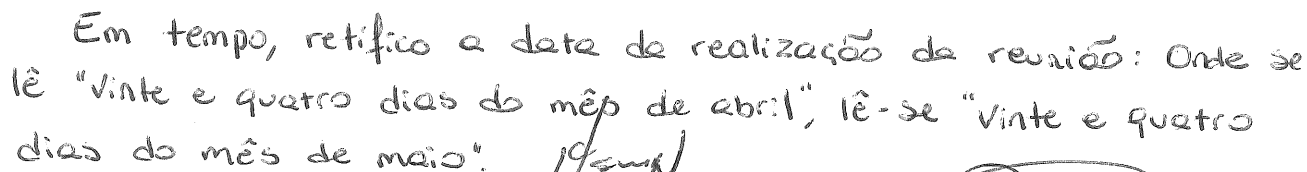 Em tempo, retifico a data da realização da reunião: Onde se
lê "Vinte e quatro dias do mês de abril", lê-se "Vinte e quatro
dias do mês de maio".